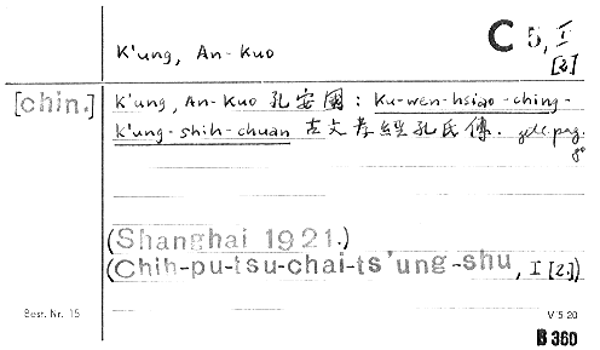 C 5, I
[2]
K'ung, An-Kuo
[chin.] K'ung, An-Kuo 孔安國 : Ku-wen-hsiao-ching-
k'ung-shih-chuan 古文孝經孔氏傳. getr. pag.
8°
(Shanghai 1921.)
(Chih-pu-tsu-chai-ts'ung-shu, I [2.])
Best. Nr. 15
V 5 20
B 360